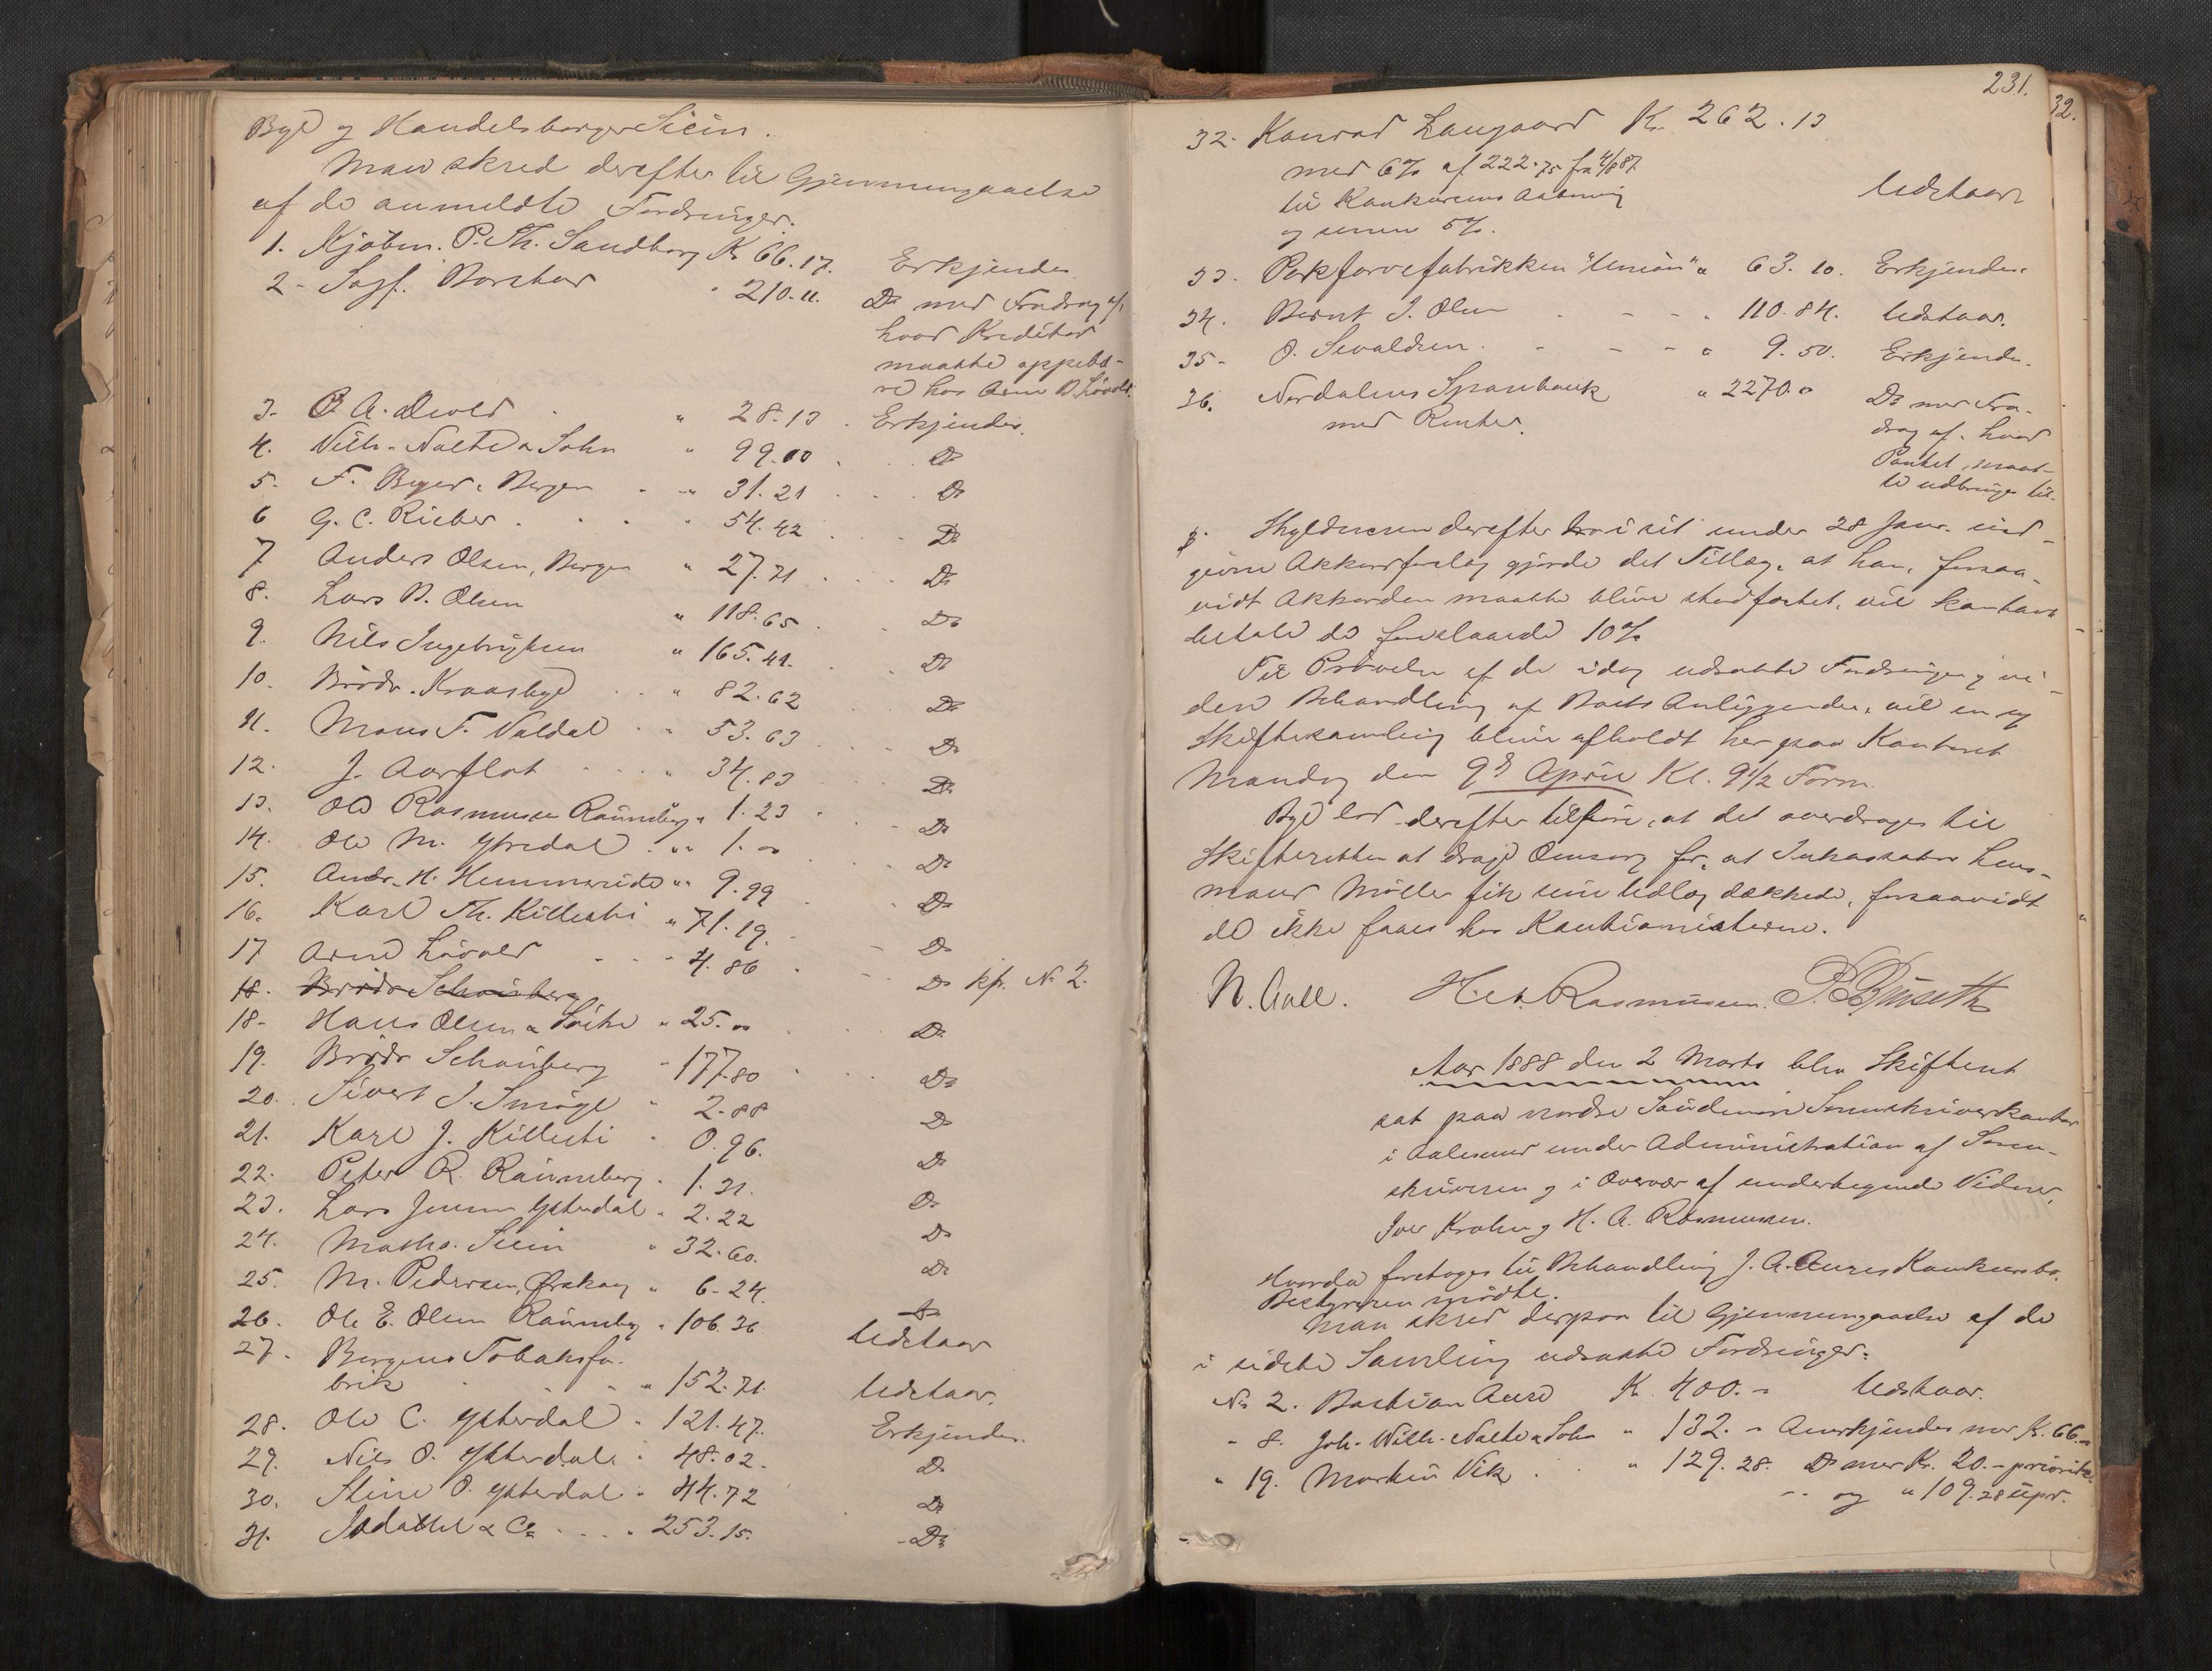 Byd og Handelsborger Stein.
Man skred derefter til Gjennemgaaelse
af de anmeldte Fordringer.
1. Kjøbm. P. Th. Sandborg K 66.17. Erkjendes.
2 - Sagf. " 210.11. Do med Fradrag af,
hvad Kreditor
maatte oppebæ-
re hos Arne Løvold.
3. O. A. Devold " 28.13 . Erkjendes.
4. Wilh. Nolte & Sohn " 99.00 . Do
5. F. Beyer, Bergen " 31.21 . . . Do
6 G. C. Rieber . . . " 54.42 . . . Do
7 Anders Olsen, Bergen " 27.71 . . . Do
8. Lars B. Olsen " 118.65 . . Do
9. Nils Ingebrigtsen " 165.41. . Do
10. Brødr. Kraasbye . . " 82.62 Do
11. Mons F. Valdal . . " 53.63 . . Do
12. J. Aarflot . . . " 34.83 Do
13. Ole Rasmussen Rønneberg " 1.23 . . Do
14. Ole M. Ytredal . " 1. - . . Do
15. Andr. H. Hemmevide " 9.99 . . Do
16. Karl Th. Killesti " 71.19. . . Do
17 Arne Løvold . . . 4.86 . - Do kfr. No 2.
18. Brødr Schønberg
18 - Hans Olsen & Søn " 25. oo . Do
19. Brødr Schønberg " 177.80 . . . Do
20. Sivert S. Smøge " 2.88 Do
21. Karl J. Killesti " 0.96. Do
22. Peter R. Rønneberg . 1.31. Do
23. Lars Jensen Ytterdal " 2.22 Do
24. Maths. Stein " 32.60. Do
25. M. Pedersen, Ørskog " 6-24.
26. Ole E. Olsen Rønneberg " 106.36 Udstaar
27. Bergens Tobaksfa-
brik . . . " 152.71. Udstaar.
28. Ole C. Ytterdal . 121.47. Erkjendes.
29. Nils O. Ytterdal " 48.02. Do
30. Stine O. Ytterdal " 44.72 Do
31. & Co . . . . " 253.15. - Do
231.
32.
32. Konrad Langaard K. 262.13
med 6% af 222.75 fra 4/8 87
til Konkursens Aabning Udstaar
og senere 5%.
33. Pakfarvefabrikken "Union" " 63.10. Erkjendes.
34. Bernt J. Olsen . - - . 110.84. Udstaar.
35 - O. Sevaldsen. - - - " 9.50. Erkjendes.
36. Nordalens Sparebank " 2270. " Do med Fra-
med Renter. drag af, hvad
Pantet maat-
te udbringes til.
Skyldneren derefter i sit under 28 Janr. ind-
givne Akkordforslag gjorde det Tillæg, at han, forsaa-
vidt Akkorden maatte blive stadfæstet, vil kontant
betale de foreslaaede 10%
Til Prøvelse af de idag udsatte Fordringer og vi-
dere Behandling af Boets Anliggender, vil en ny
Skiftesamling blive afholdt her paa Kontoret
Mandag den 9de April Kl. 9 1/2 Form.
Byd lod derefter tilføre, at det overdrages til
Skifteretten at drage Omsorg for, at Inkassator Lens-
mand Møller fik sine Udlæg dækkede, forsaavidt
de ikke faaes hos Kautionisterne.
N. Aall. H. A. Rasmussen. P. Buseth
Aar 1888 den 2 Marts blev Skifteret
sat paa nordre Søndmøre Sorenskriverkontor
i Aalesund under Administration af Soren-
skriveren og i Overvær af undertegnede Vidner,
Iver Krohn og H. A. Rasmussen.
Hvorda foretoges til Behandling J. A. Aures Konkursbo.
Bestyreren mødte.
Man skred derpaa til Gjennemgaaelse af de
i sidste Samling udsatte Fordringer:
No 2. Bastian Aure K. 400. - Udstaar.
" 8. Joh. Wilh. Nolte & Sohn " 132. - Anerkjendes med K. 66. -
" 19. Martin Vik . . " 129.28. Do med Kr. 20. - prioritet
- . og " 109.28 upr.